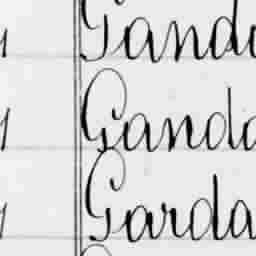 Gand
Ganda
Garda